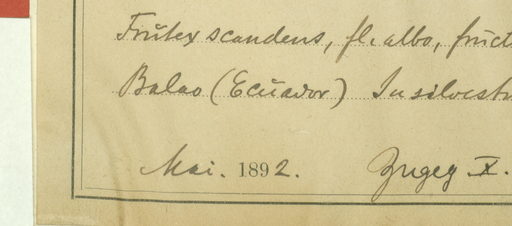 Frutex scandens, fl. albo, fruct
Balao (Ecuador) In silvestr
Mai. 1892.